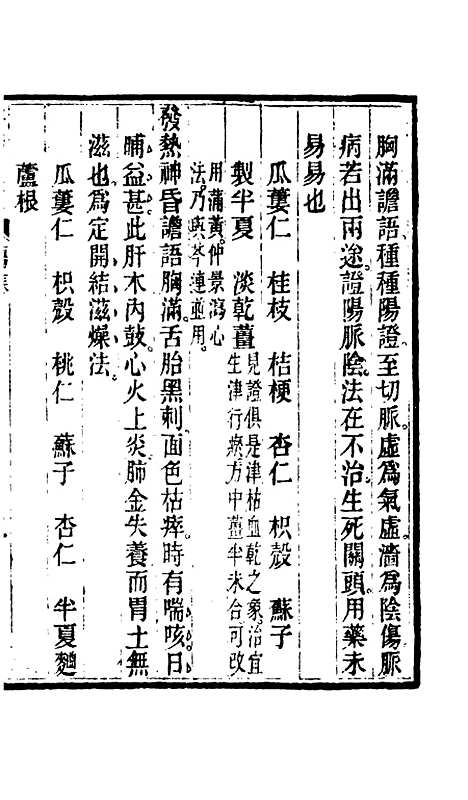 胸滿譫語種種陽證至切脈虛爲氣虛濇爲陰傷脈
病若出兩途證陽脈陰法在不治生死關頭用藥未
易易也
瓜蔞仁 桂枝 桔梗 杏仁 枳殼 蘇子
製半夏 淡乾薑 見證俱是津枯血乾之象治宜
生津行瘀方中薑半未合可改
用蒲黃仲景瀉心
法乃與芩連並用
發熱神昏譫語胸滿舌胎黑刺面色枯瘁時有喘咳日
晡益甚此肝木內鼓心火上炎肺金失養而胃土無
滋也爲定開結滋燥法
瓜蔞仁 枳殼 桃仁 蘇子 杏仁 半夏麯
蘆根